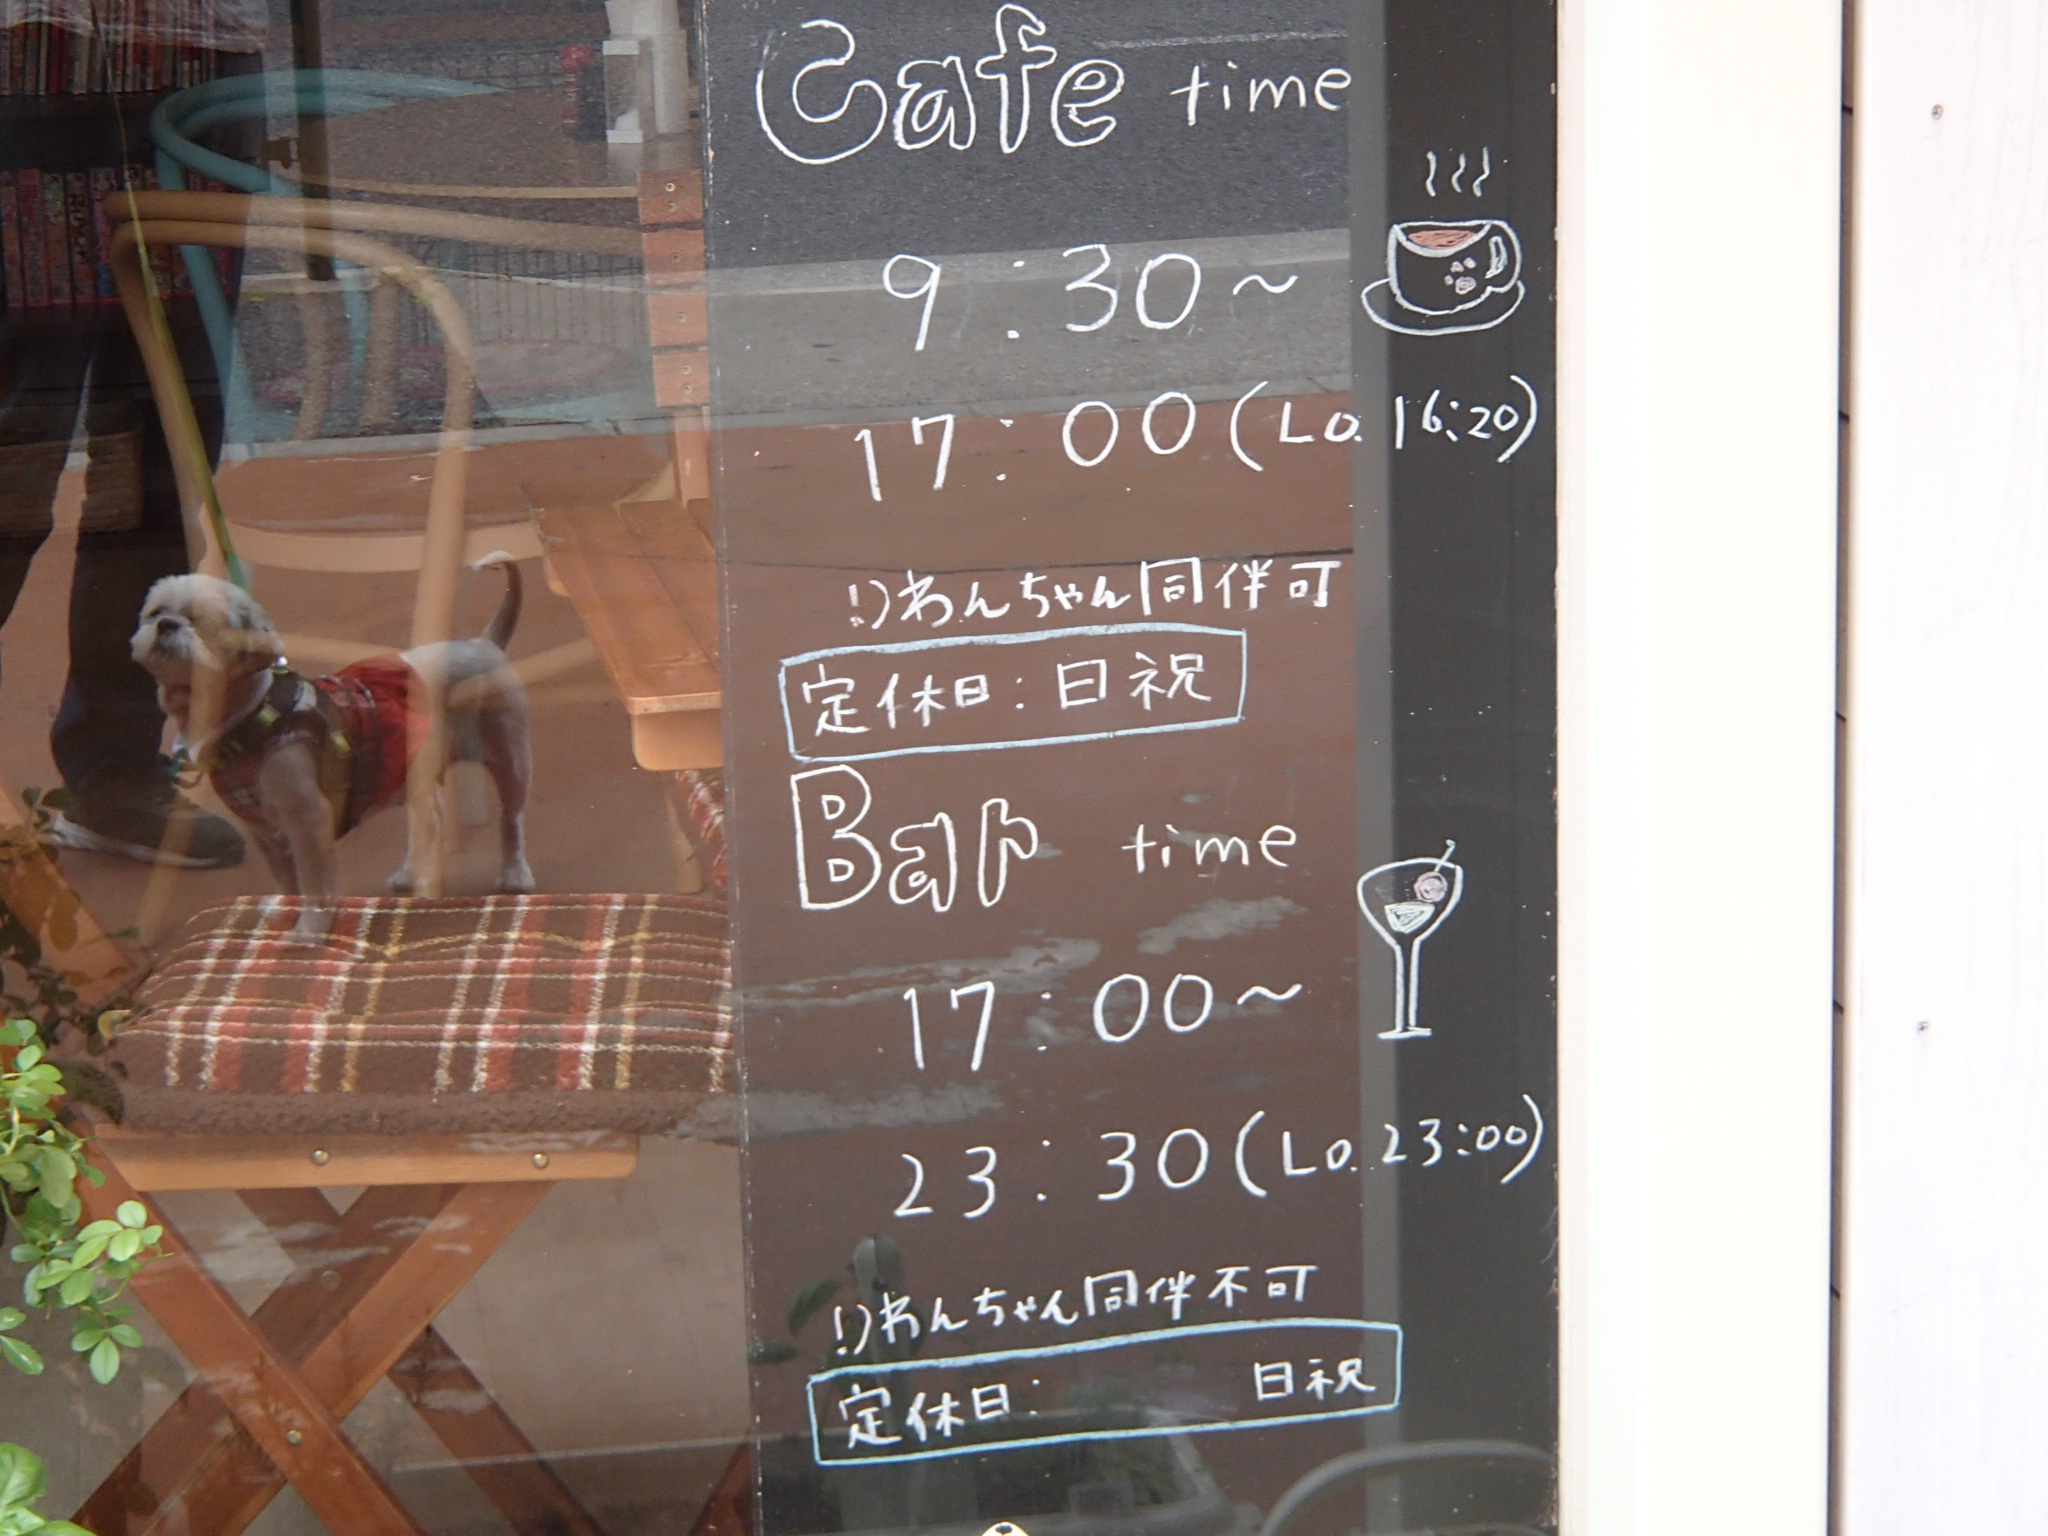 Cafe time
9:30~
17:00(Lo.16:20)
!)わんちゃん同伴可
定休日:日祝
Bar time
17:00~
23:30(Lo.23:00)
!)わんちゃん同伴不可
定休日: 日祝